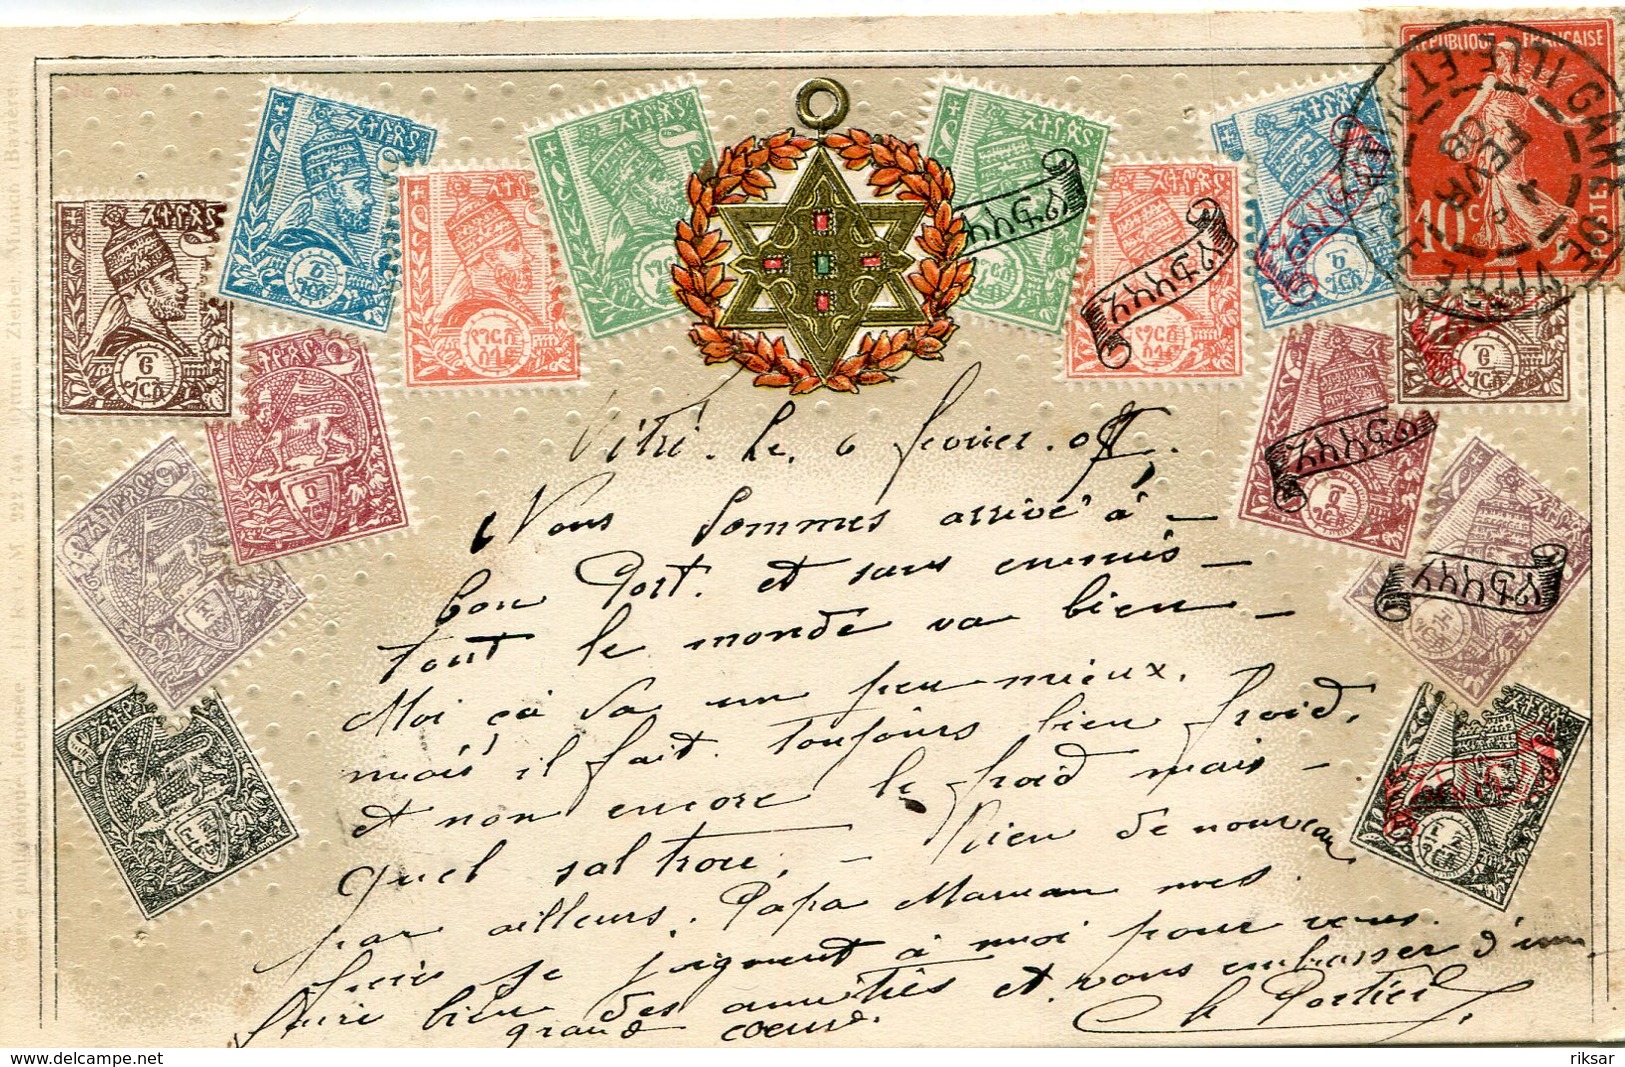 RÉPUBLIQUE FRANÇAISE
10c
POSTES
GARE DE VITRÉ
ILLE-ET
FEVR
08
ኢትዮጵያ
ኢትዮጵያ
ኢትዮጵያ
ኢትዮጵያ
ኢትዮጵያ
Vitré. le. 6 fevrier. 08.
Nous sommes arrivé à
bon Port. et sans ennuis
tout le monde va bien
Moi ça va un peu mieux.
mais il fait toujours bien froid.
et non encore le froid mais
quel sal trou, - Rien de nouveau
par ailleurs. Papa Maman mes
se joignent à moi pour vous
faire bien des amitiés et vous embrasser d'un
grand coeur.
Ch Portier
Carte philatélique déposée. D. R. G. M. 22 744 Ottmar Zieher, Munich Bavière
riksar